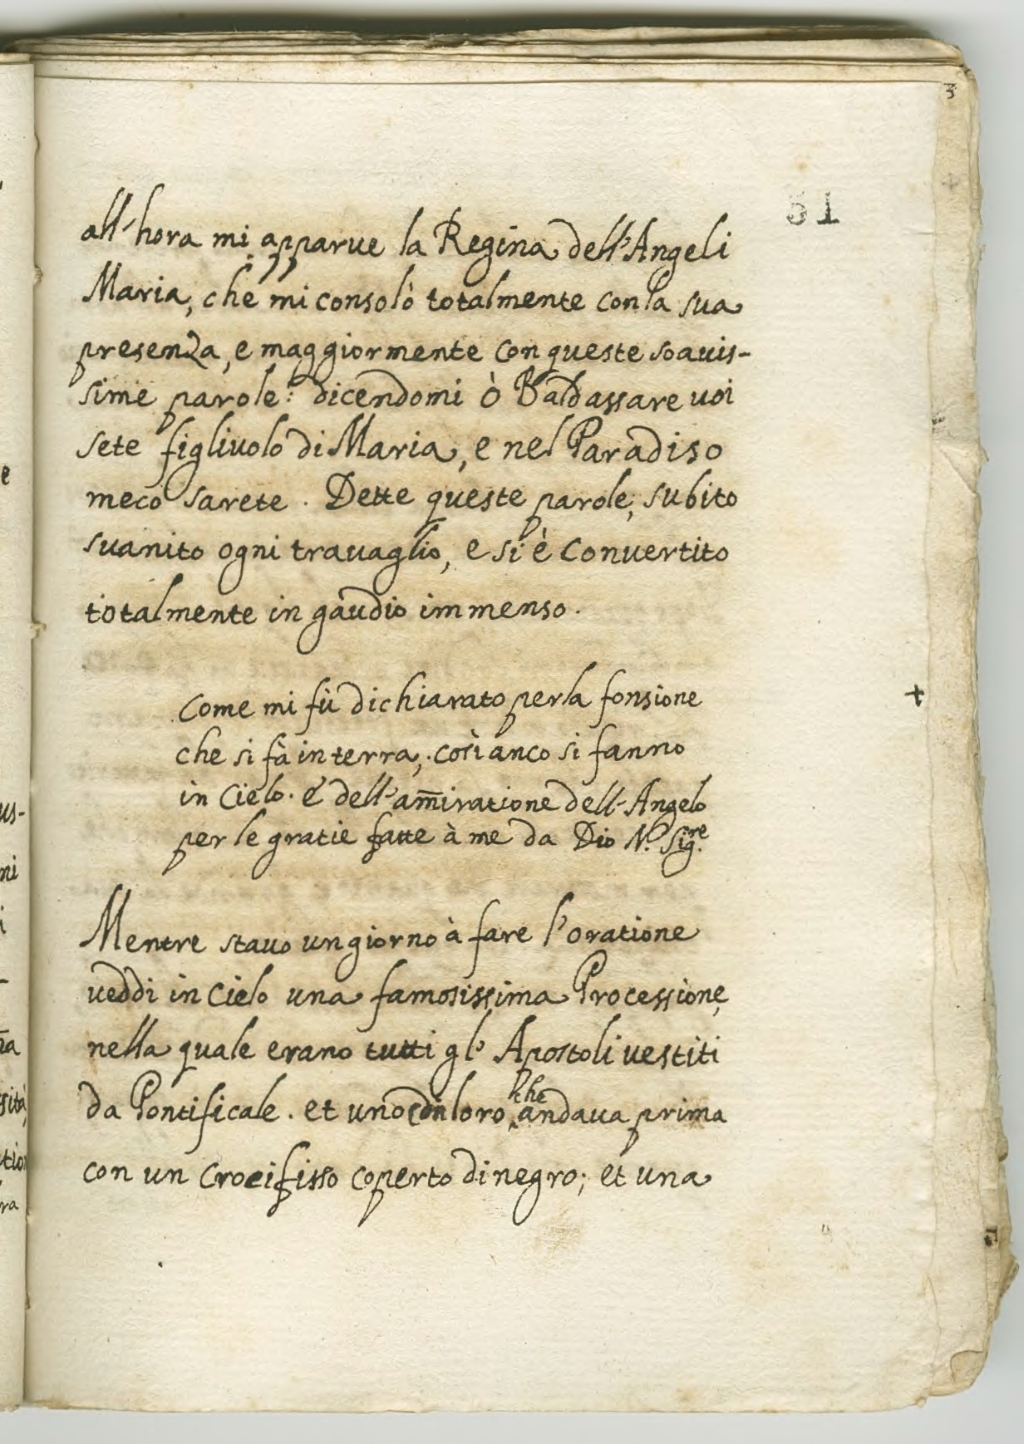 3
51
all'hora mi apparue la Regina dell'Angeli
Maria, che mi consolò totalmente con la sua
presenza, e maggiormente con queste soauis-
sime parole: dicendomi ò Baldassare uoi
sete figliuolo di Maria, e nel Paradiso
meco sarete. Dette queste parole, subito
suanito ogni trauaglio, e si è conuertito
totalmente in gaudio immenso.
Come mi fù dichiarato per la fonsione
che si fà in terra, così anco si fanno
in Cielo. e dell'am̄iratione dell'Angelo
per le gratie fatte à me da Dio N. Sig.re
+
Mentre stauo un giorno à fare l'oratione
ueddi in Cielo una famosissima Processione,
nella quale erano tutti gl' Apostoli uestiti
da Pontificale. et uno di loro, che andaua prima
con un Crocifisso coperto di negro; et una